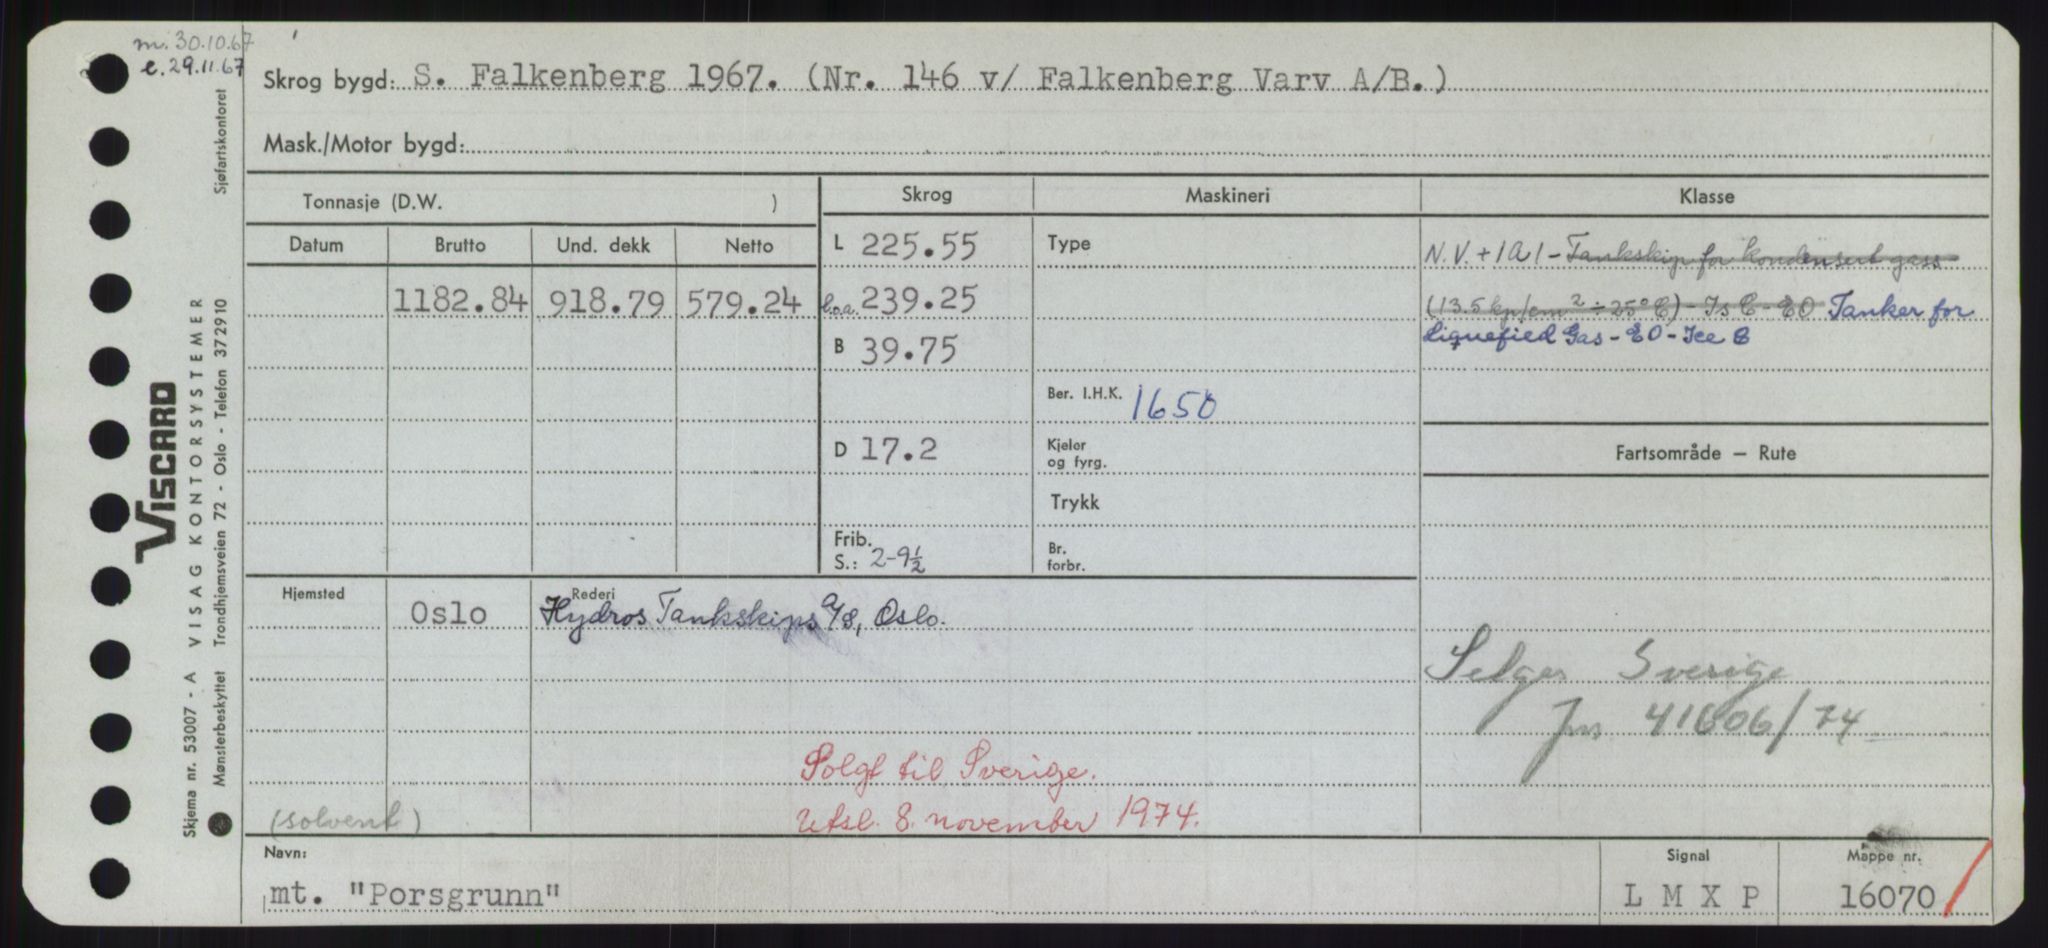 m. 30.10.67
e. 29.11.67
Skrog bygd: S. Falkenberg 1967. (Nr. 146 v/ Falkenberg Varv A/B.)
Mask./Motor bygd:
Tonnasje (D.W. )
Skrog Maskineri Klasse
Datum Brutto Und. dekk Netto
L 225.55 Type N.V. + 1A1 - Tankskip for kondensert gass
1182.84 918.79 579.24 l.o.a. 239.25 (13.5 kp/cm² ÷ 25°C) - Is C - EO Tanker for
B 39.75 Liquefied Gas - EO - Ice C
Ber. I.H.K. 1650
D 17.2 Kjeler og fyrg. Fartsområde – Rute
Trykk
Frib. S.: 2-9½ Br. forbr.
Hjemsted Oslo Rederi Hydros Tankskips A/S, Oslo.
Selges Sverige
jnr. 41606/74
Solgt til Sverige.
(solvent) Utsl. 8. november 1974.
Navn: mt. "Porsgrunn" Signal L M X P Mappe nr. 16070
VISCARD
Skjema nr. 53007 - A VISAG KONTORSYSTEMER
Mønsterbeskyttet Trondhjemsveien 72 - Oslo - Telefon 372910 Sjøfartskontoret